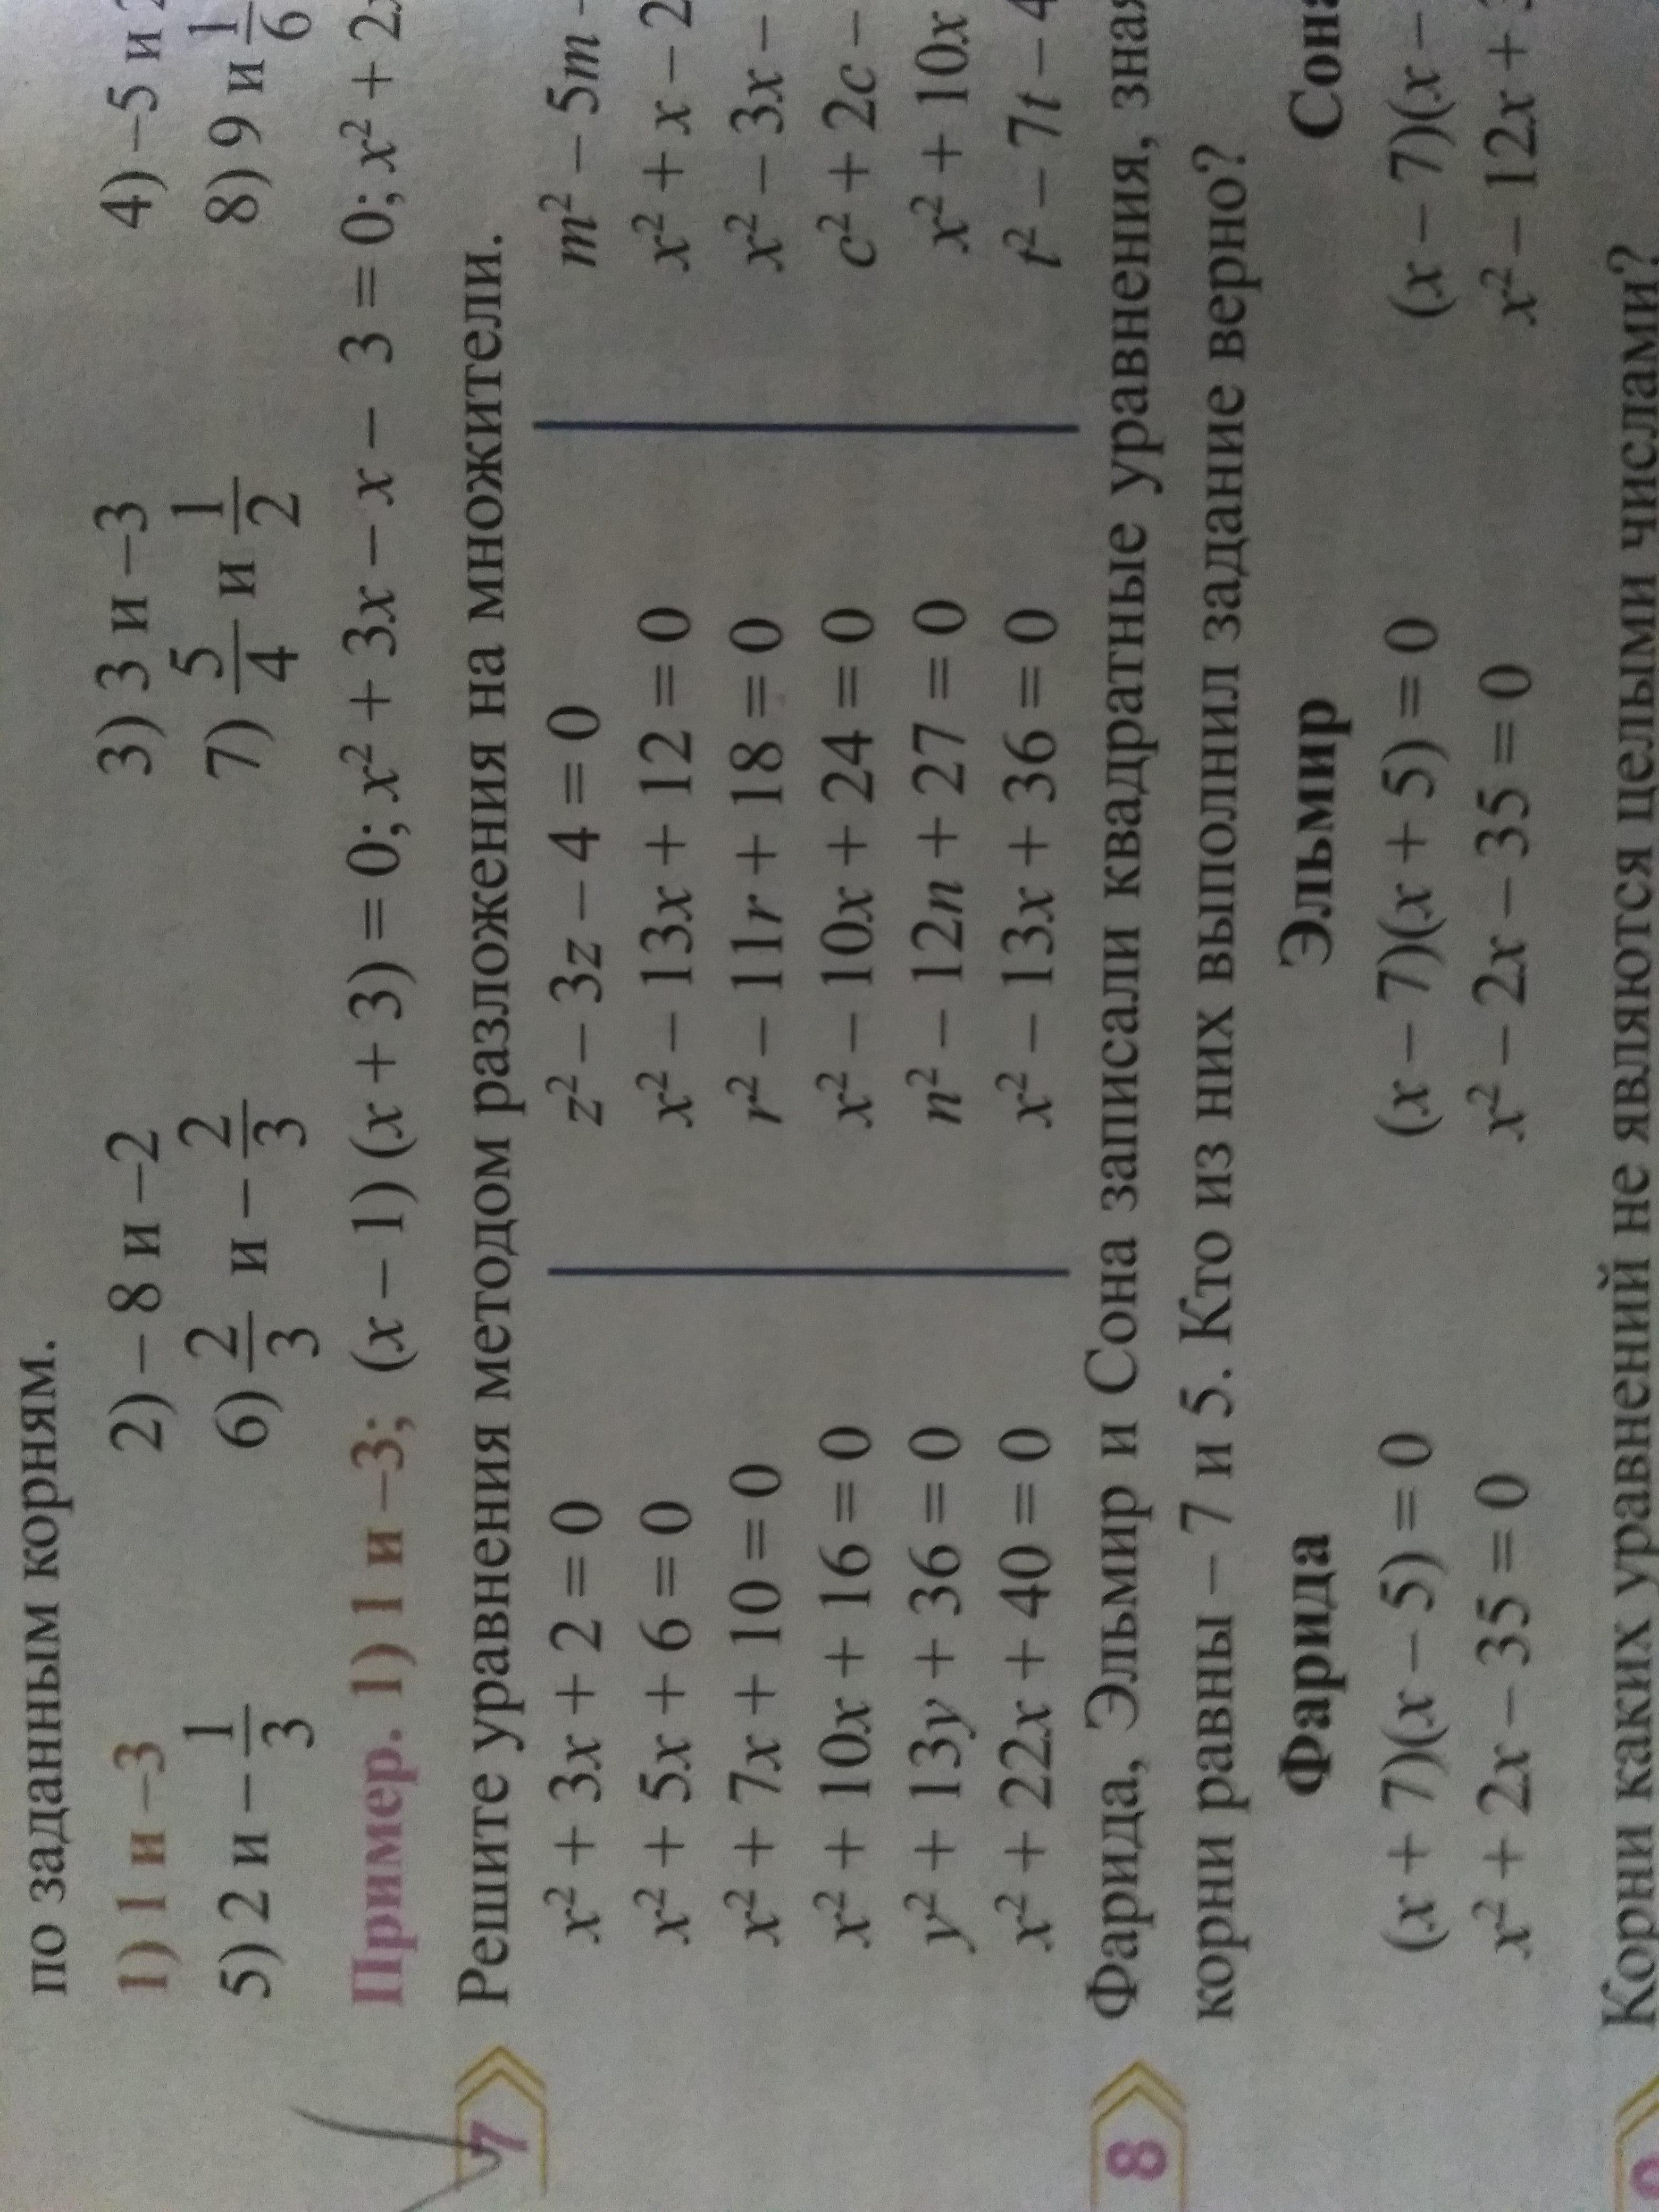 по заданным корням.
1) 1 и –3 2) – 8 и –2 3) 3 и –3 4) –5 и
5) 2 и – 1/3 6) 2/3 и – 2/3 7) 5/4 и 1/2 8) 9 и 1/6
Пример. 1) 1 и –3; (x – 1) (x + 3) = 0; x² + 3x – x – 3 = 0; x² + 2
7
Решите уравнения методом разложения на множители.
x² + 3x + 2 = 0 z² – 3z – 4 = 0 m² – 5m –
x² + 5x + 6 = 0 x² – 13x + 12 = 0 x² + x – 2
x² + 7x + 10 = 0 r² – 11r + 18 = 0 x² – 3x –
x² + 10x + 16 = 0 x² – 10x + 24 = 0 c² + 2c –
y² + 13y + 36 = 0 n² – 12n + 27 = 0 x² + 10x
x² + 22x + 40 = 0 x² – 13x + 36 = 0 t² – 7t – 4
8
Фарида, Эльмир и Сона записали квадратные уравнения, зная
корни равны – 7 и 5. Кто из них выполнил задание верно?
Фарида Эльмир Сона
(x + 7)(x – 5) = 0 (x – 7)(x + 5) = 0 (x – 7)(x –
x² + 2x – 35 = 0 x² – 2x – 35 = 0 x² – 12x +
Корни каких уравнений не являются целыми числами?